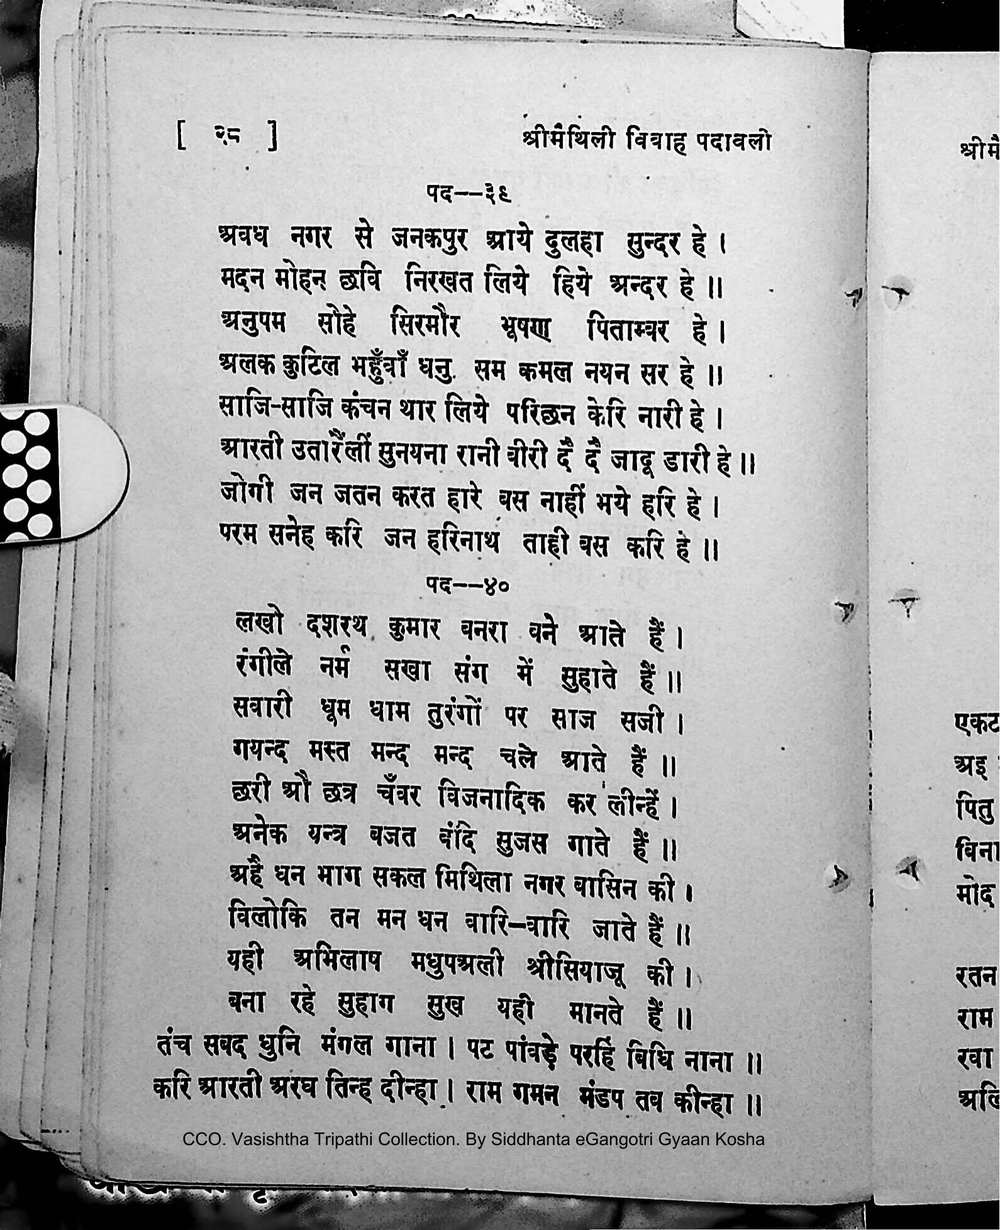 [ २८ ]
श्रीमैथिली विवाह पदावली
पद--३९
अवध नगर से जनकपुर आये दुलहा सुन्दर हे ।
मदन मोहन छवि निरखत लिये हिये अन्दर हे ॥
अनुपम सोहे सिरमौर भूषण पिताम्वर हे ।
अलक कुटिल भहुँवाँ धनु सम कमल नयन सर हे ॥
साजि-साजि कंचन थार लिये परिछन केरि नारी हे ।
आरती उतारैंलीं सुनयना रानी वीरी दै दै जादू डारी हे ॥
जोगी जन जतन करत हारे बस नाहीं भये हरि हे ।
परम सनेह करि जन हरिनाथ ताही बस करि हे ॥
पद--४०
लखो दशरथ कुमार बनरा बने आते हैं ।
रंगीले नर्म सखा संग में सुहाते हैं ॥
सवारी धूम धाम तुरंगों पर साज सजी ।
गयन्द मस्त मन्द मन्द चले आते हैं ॥
छरी औ छत्र चँवर विजनादिक कर लीन्हें ।
अनेक यन्त्र बजत बंदि सुजस गाते हैं ॥
अहै धन भाग सकल मिथिला नगर वासिन की ।
विलोकि तन मन धन वारि-वारि जाते हैं ॥
यही अभिलाष मधुपअली श्रीसियाजू की ।
बना रहे सुहाग सुख यही मानते हैं ॥
तंच सबद धुनि मंगल गाना । पट पांवड़े परहिं बिधि नाना ॥
करि आरती अरघ तिन्ह दीन्हा । राम गमन मंडप तव कीन्हा ॥
CCO. Vasishtha Tripathi Collection. By Siddhanta eGangotri Gyaan Kosha
श्रीमै
एकट
अइ
पितु
विना
मोद
रतन
राम
रवा
अलि